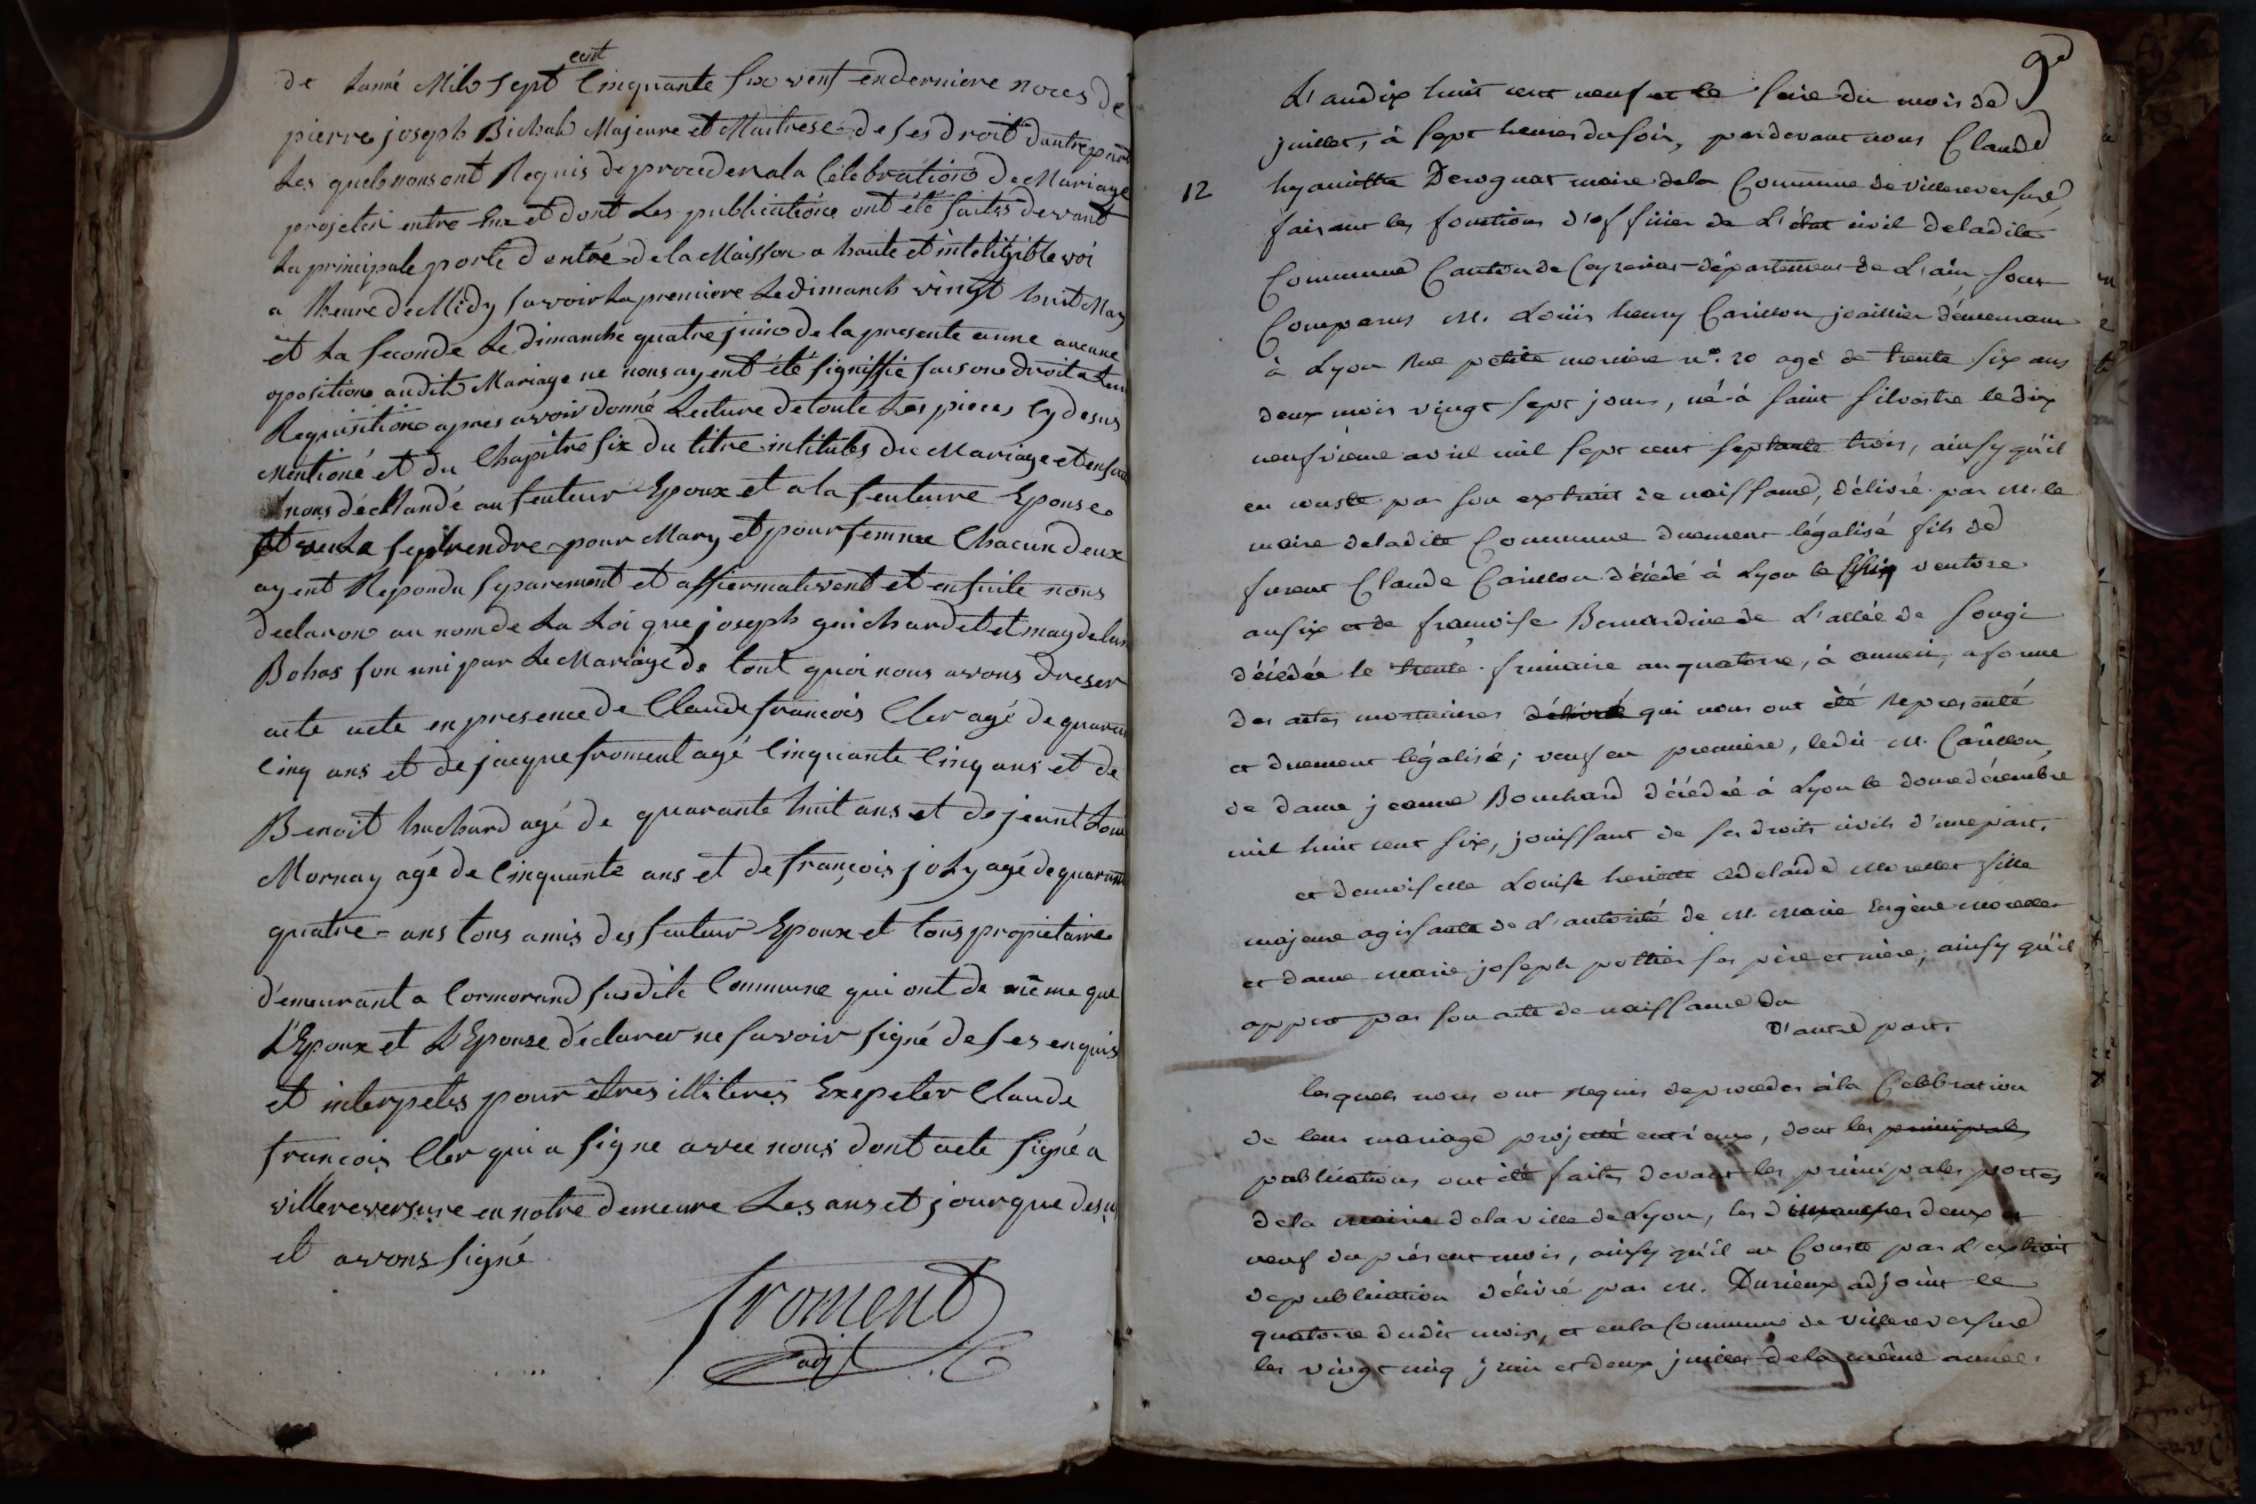 cent
de Lanné Mil Sept Cinquante Six vent en derniere noces de
pierre joseph Bichat Majeure et Maitrese de ses droit dautre part
Les quels nous ont Requis de proceder a la Célébration de Mariage
projeter entre Eux et dont Les publications ont été faites devant
La principale porte d entré de la Maisson a haute et intelligible voi
a lheure de Midy savoir La premiere Le dimanch vingt huit May
et La Seconde Le dimanche quatre juin de la presente anne aucune
oposition au dit Mariage ne nous ayent été signiffié faisons droit a Leur
Requisition apres avoir donné Lecture de toute Les pieces Cy desus
Mentioné et du Chapitre Six du titre intitules du Mariage et ensuite
nous déMandé au feuteur Epoux et a la feuteure Epouse
se prendre pour Mary et pour femme Chacun deux
ayent Repondu Séparement et affiermativent et ensuite nous
declaron au nom de La Loi que joseph guichardet et maydelaine
Bohas son uni par Le Mariage de tout quoi nous avons dreser
acte acte en presence de Claude francois Cler agé de quarante
Cinq ans et de jacque froment agé Cinquante Cinq ans et de
Benoit huchard agé de quarante huit ans et de jeant Loui
Mornay agé de Cinquante ans et de françois joly agé de quarante
quatre ans tous amis des feuteur Epoux et tous propietaire
d'emeurant a Cormorand susdite Commune qui ont de même que
L'Epoux et L'Epouse déclarer ne savoir signé de ses enquis
et interpeles pour êtres illiteres Exepeter Claude
francois Cler qui a signe avec nous dont acte signé a
villereversure en notre demeure Les ans et jour que desu
et avons signé
froment
adj
9e
L'an dix huit cent neuf et le seize du mois de
juillet, à sept heures du soir, pardevant nous Claude
12
hyacinthe Derognat maire de la Commune de villereversure
faisant les fonctions d'officier de L'état civil de ladite
Commune Canton de Ceyzeriat département de L'ain, sont
Comparus M. Loüis henry Carillon joaillier démeurant
à Lyon Rue petite merciere n°. 20 agé de trente six ans
deux mois vingt sept jours, né à saint silvestre le dix
neufvieme avril mil sept cent septante trois, ainsy qu'il
en conste par son extrait de naissance, délivré par M. le
maire de ladite Commune duement légalisé fils de
furent Claude Carillon décédé à Lyon le ventose
an six et de francoise Bernardine de L'allée de Songi
décédée le trente frimaire an quatorze, à anneci, a forme
des actes mortuaires délivré qui nous ont été représenté
et duement légalisé; veuf en premiere, ledit M. Carillon,
de dame jeanne Bouchard décédée à Lyon le douze décembre
mil huit cent six, jouissant de ses droits civils d'une part,
et demoiselle Louise heriette Adelaïde Morellet fille
majeure agissante de L'autorité de M. Marie Eugène Morellet
et dame marie joseph pottier ses père et mère, ainsy qu'il
appert par son acte de naissance du
D'autre part.
lesquels nous ont requis de proceder à la Celebration
de leur mariage projetté entr'eux, dont les principales
publications ont été faites devant les principales portes
de la mairie de la ville de Lyon, les dimanches deux et
neuf du présent mois, ainsy qu'il en Conste par L'extrait
de publication délivré par M. Durieux adjoint le
quatorze dudit mois, et en la Commune de villereversure
les vingt cinq juin et deux juillet de la même année.